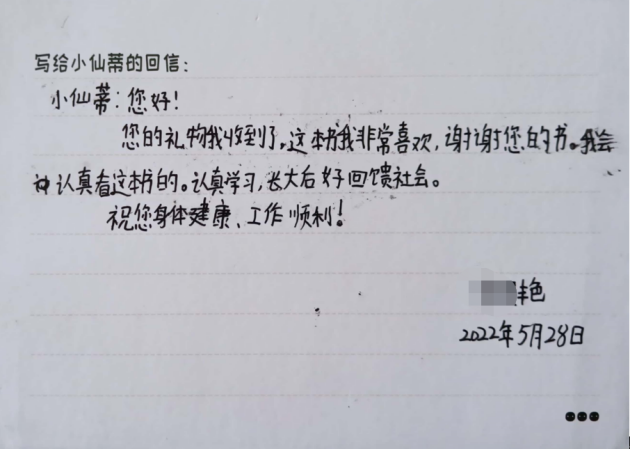 写给小仙蒂的回信：
小仙蒂：您好！
您的礼物我收到了。这本书我非常喜欢，谢谢您的书。我会
认真看这本书的。认真学习，长大后好回馈社会。
祝您身体健康、工作顺利！
艳
2022年5月28日